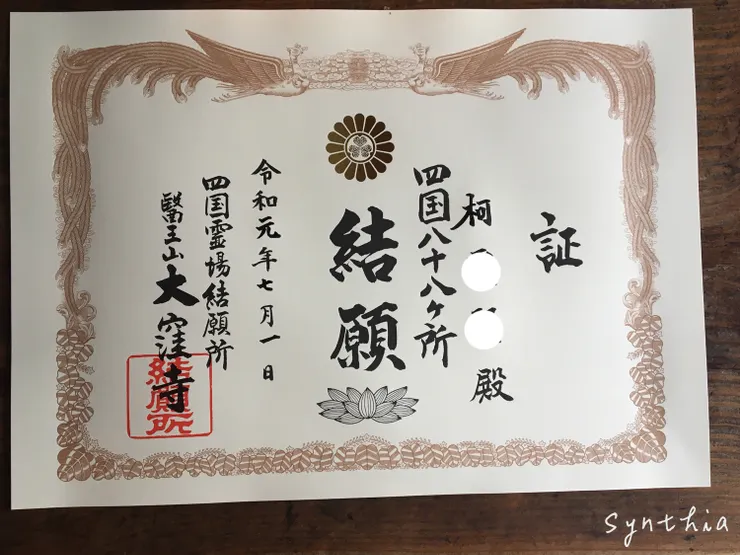 証
柯 殿
四国八十八ヶ所
結願
令和元年七月一日
四国霊場結願所
醫王山大窪寺
結願所
Synthia